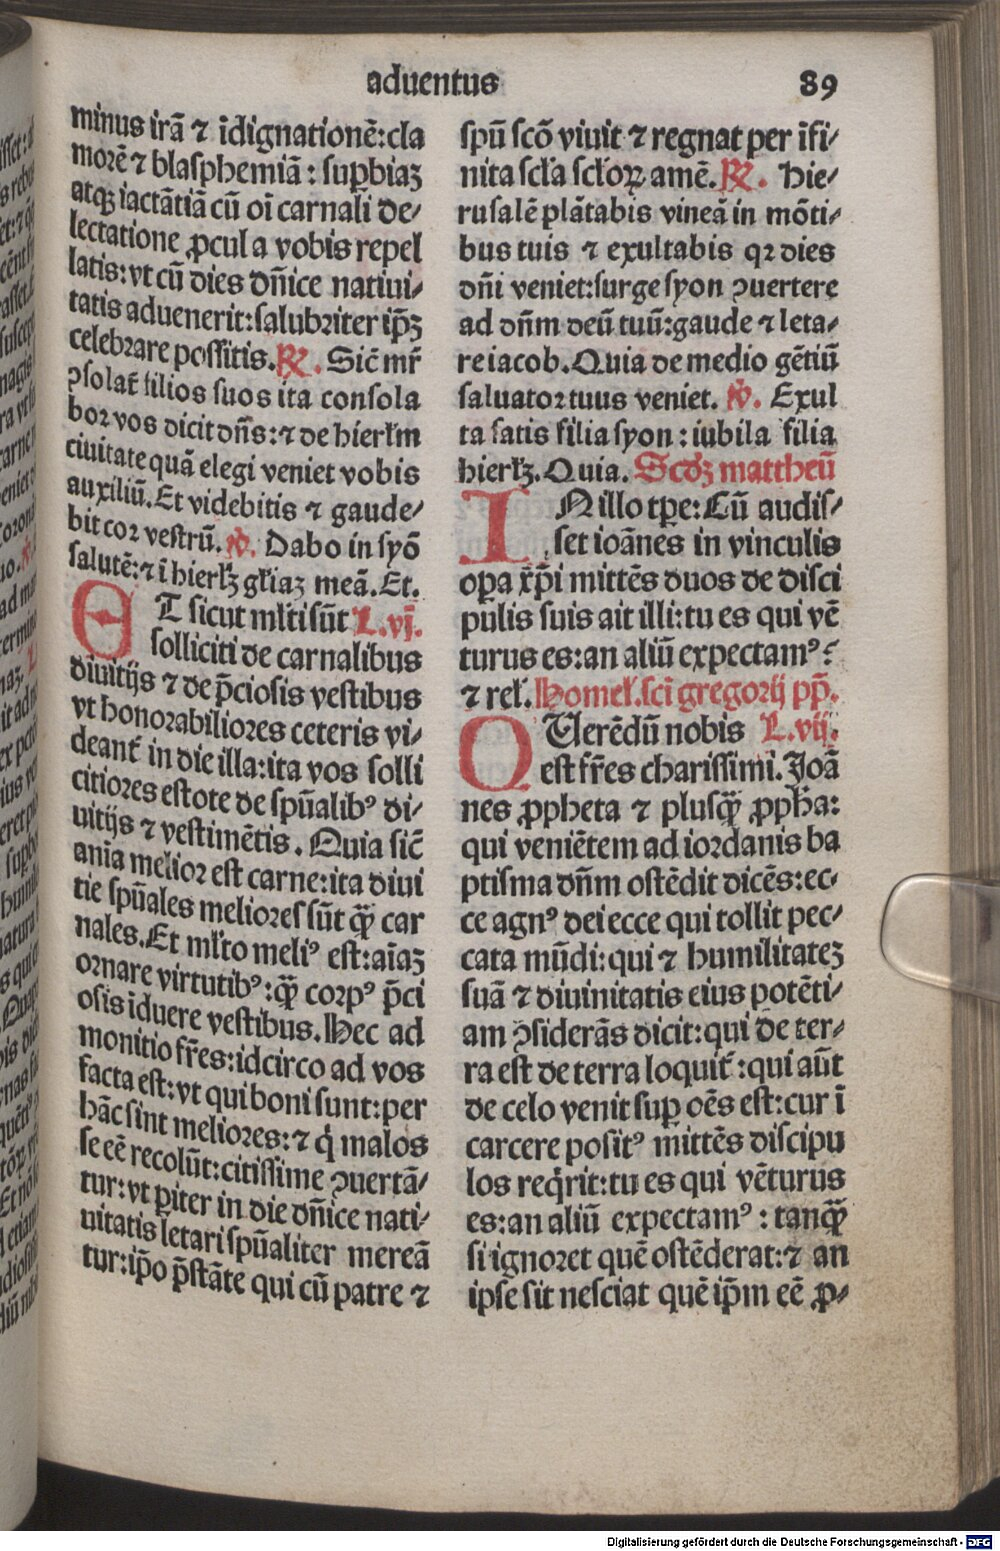 aduentus 89
minus irā ⁊ īdignationē:cla
morē ⁊ blasphemiā : suꝑbiaꝫ
atqꝫ iactātiā cū oī carnali de⸗
lectatione ꝓcul a vobis repel
latis:vt cū dies dñice natiui⸗
tatis aduenerit:salubriter ip̄ꝫ
celebrare possitis. ℟. Sic̄ mr̄
ꝯsolat̄ filios suos ita consola
bor vos dicit dn̄s:⁊ de hierłm
ciuitate quā elegi veniet vobis
auxiliū. Et videbitis ⁊ gaude⸗
bit cor vestrū. ℣. Dabo in syō
salutē:⁊ ī hierłꝫ głiaꝫ meā. Et.
ET sicut młti sūt L.vj.
solliciti de carnalibus
diuitijs ⁊ de p̄ciosis vestibus
vt honorabiliores ceteris vi⸗
deant̄ in die illa:ita vos solli
citiores estote de spūalibꝰ di⸗
uitijs ⁊ vestimētis. Quia sic̄
anīa melior est carne:ita diui
tie spūales meliores sūt qꝫ̄ car
nales. Et młto meliꝰ est:aīaꝫ
ornare virtutibꝰ:qꝫ̄ corpꝰ p̄ci
osis īduere vestibus. Hec ad
monitio fr̄es:idcirco ad vos
facta est:vt qui boni sunt:per
hāc sint meliores:⁊ q̇ malos
se eē recolūt:citissime ꝯuertā⸗
tur:vt ꝑiter in die dn̄ice nati⸗
uitatis letari spūaliter mereā
tur:ip̄o p̄stāte qui cū patre ⁊
spū scō viuit ⁊ regnat per īfi⸗
nita scła scłoꝝ amē. ℟. Hie⸗
rusalē plātabis vineā in mōti⸗
bus tuis ⁊ exultabis qꝛ dies
dn̄i veniet:surge syon ꝯuertere
ad dn̄m deū tuū:gaude ⁊ leta⸗
re iacob. Quia de medio gētiū
saluator tuus veniet. ℣. Exul
ta satis filia syon : iubila filia
hierłꝫ. Quia. Scd̄ꝫ mattheū
IN illo tꝑe: Cū audis⸗
set ioānes in vinculis
oꝑa xp̄i mittēs duos de disci
pulis suis ait illi:tu es qui vē
turus es:an aliū expectamꝰ?
⁊ reł. Homeł. sci gregorij pp̄.
QUerēdū nobis L.vij.
est fr̄es charissimi. Joā
nes ꝓpheta ⁊ plusqꝫ̄ ꝓph̄a:
qui veniētem ad iordanis ba
ptisma dn̄m ostēdit dicēs:ec⸗
ce agnꝰ dei ecce qui tollit pec⸗
cata mūdi:qui ⁊ humilitateꝫ
suā ⁊ diuinitatis eius potēti⸗
am ꝯsiderās dicit:qui de ter⸗
ra est de terra loquit̄ :qui aūt
de celo venit suꝑ oēs est:cur ī
carcere positꝰ mittēs discipu
los req̇rit:tu es qui vēturus
es:an aliū expectamꝰ : tanqꝫ̄
si ignoret quē ostēderat:⁊ an
ipse sit nesciat quē ip̄m eē ꝓ⸗
Digitalisierung gefördert durch die Deutsche Forschungsgemeinschaft - DFG